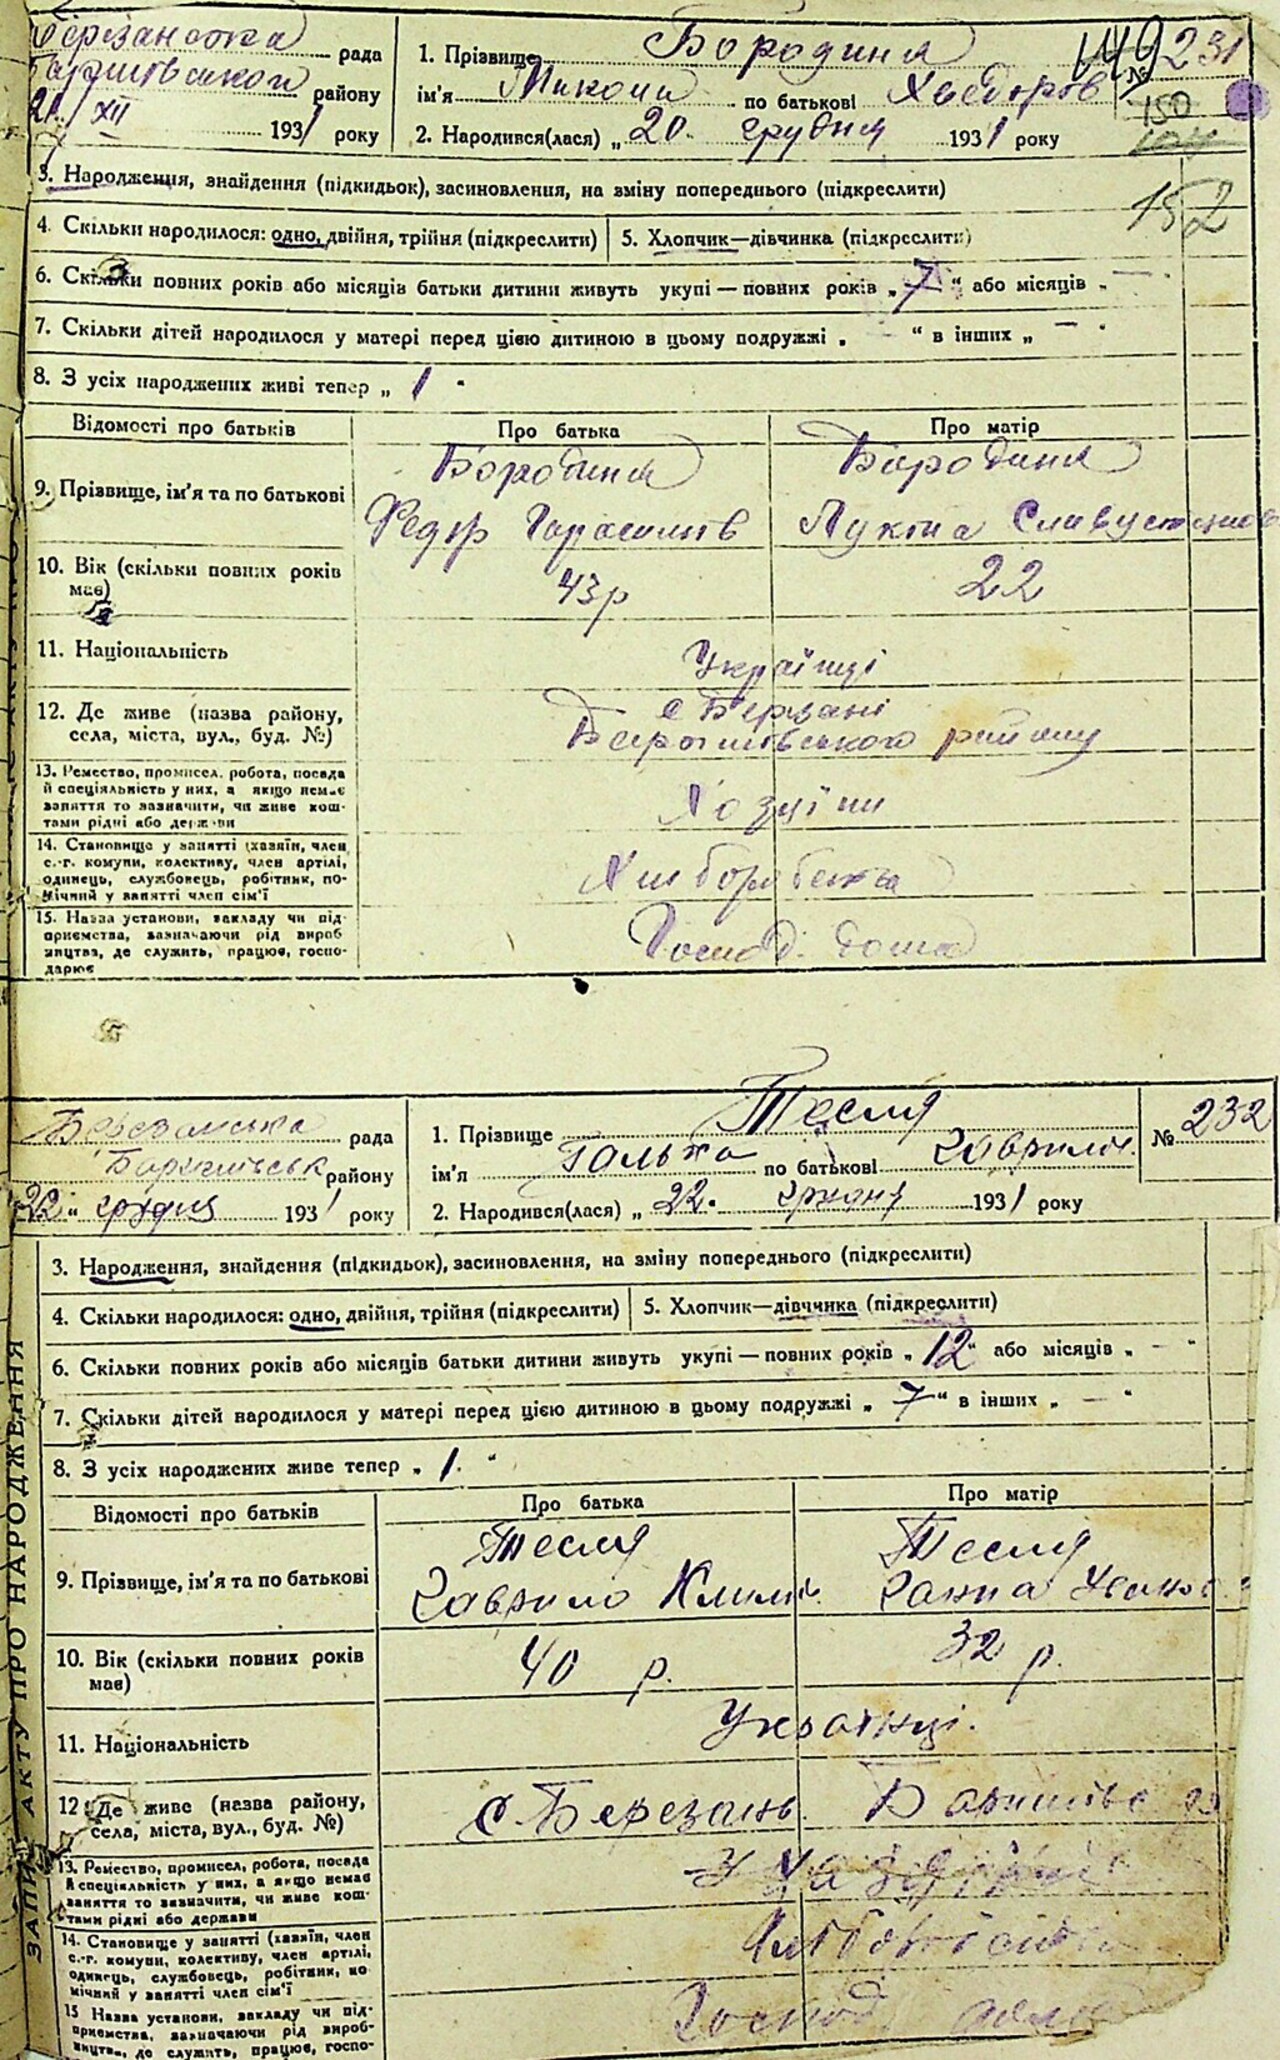 Березанська рада
Баришівської району
21/XII 1931 року
1. Прізвище Бородина
ім'я Микола по батькові Хведоров
2. Народився(лася) „ 20 грудня 1931 року
149 № 231
150
152
3. Народження, знайдення (підкидьок), засиновлення, на зміну попереднього (підкреслити)
4. Скільки народилося: одно, двійня, трійня (підкреслити)
5. Хлопчик—дівчинка (підкреслити)
6. Скільки повних років або місяців батьки дитини живуть укупі — повних років „ 7 “ або місяців „ —
7. Скільки дітей народилося у матері перед цією дитиною в цьому подружжі „ “ в інших „ — “
8. З усіх народжених живі тепер „ 1 “
Відомості про батьків
Про батька
Про матір
9. Прізвище, ім'я та по батькові
Бородина
Федір Гарасимів
Бородина
Лукіна
10. Вік (скільки повних років
має)
43 р
22
11. Національність
Українці
12. Де живе (назва району,
села, міста, вул., буд. №)
с Берзані
Баришівського району
13. Ремество, промисел, робота, посада
й спеціяльність у них, а якщо немає
заняття то зазначити, чи живе кош-
тами рідні або держави
Хозяїни
14. Становище у занятті (хазяїн, член
с.-г. комуни, колективу, член артілі,
одинець, службовець, робітник, по-
мічний у занятті член сім'ї
Хліборобство
15. Назва установи, закладу чи під-
приємства, зазначаючи рід вироб
ництва, де служить, працює, госпо-
дарює
Господ. дома
Березанська рада
Баришівськ району
22 „ грудня 1931 року
1. Прізвище Тесля
ім'я Галька по батькові Гаврилов.
2. Народився(лася) „ 22. грудня 1931 року
№ 232
3. Народження, знайдення (підкидьок), засиновлення, на зміну попереднього (підкреслити)
4. Скільки народилося: одно, двійня, трійня (підкреслити)
5. Хлопчик—дівчинка (підкреслити)
6. Скільки повних років або місяців батьки дитини живуть укупі — повних років „ 12 “ або місяців „ — “
7. Скільки дітей народилося у матері перед цією дитиною в цьому подружжі „ 7 “ в інших „ — “
8. З усіх народжених живе тепер „ 1. “
Відомості про батьків
Про батька
Про матір
9. Прізвище, ім'я та по батькові
Тесля
Гаврило Климів.
Тесля
Ганна Іванов
10. Вік (скільки повних років
має)
40 р.
32 р.
11. Національність
Українці.
12 Де живе (назва району,
села, міста, вул., буд. №)
с. Березань. Баришівс
13. Ремество, промисел, робота, посада
й спеціяльність у них, а якщо немає
заняття то зазначити, чи живе кош-
тами рідні або держави
14. Становище у занятті (хазяїн, член
с.-г. комуни, колективу, член артілі,
одинець, службовець, робітник, по
мічний у занятті член сім'ї
15 Назва установи, закладу чи під-
приємства, зазначаючи рід вироб-
ництва, де служить, працює, госпо-
Господ дома
ЗАПИС АКТУ ПРО НАРОДЖЕННЯ